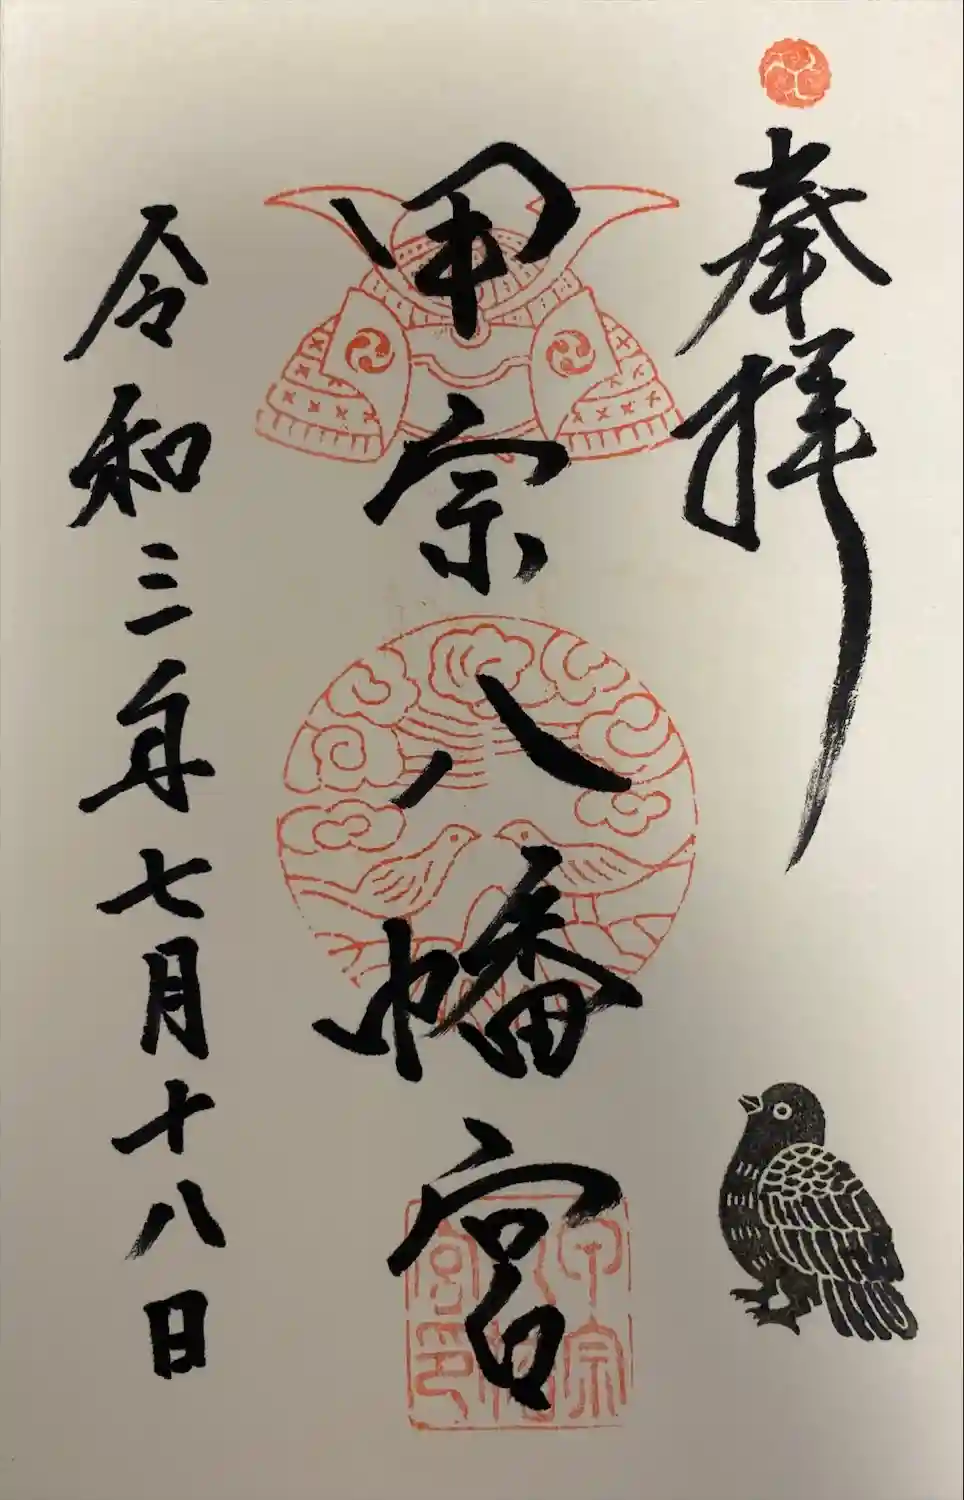 奉拝
甲宗八幡宮
甲宗八幡宮印
令和三年七月十八日